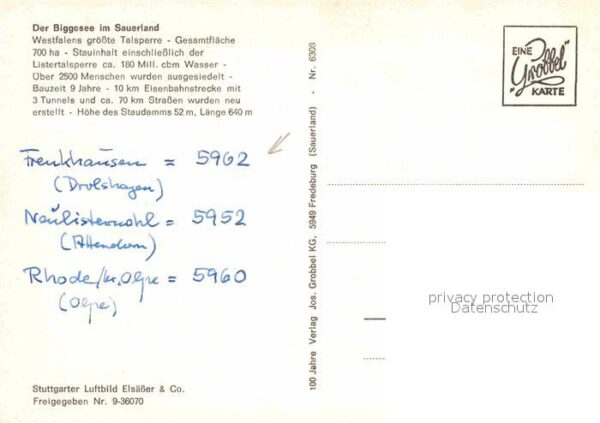 Der Biggesee im Sauerland
Westfalens größte Talsperre - Gesamtfläche
700 ha - Stauinhalt einschließlich der
Listertalsperre ca. 180 Mill. cbm Wasser -
Über 2500 Menschen wurden ausgesiedelt -
Bauzeit 9 Jahre - 10 km Eisenbahnstrecke mit
3 Tunnels und ca. 70 km Straßen wurden neu
erstellt - Höhe des Staudamms 52 m, Länge 640 m
Frenkhausen = 5962
(Drolshagen)
Neulisternohl = 5952
(Attendorn)
Rhode/Kr. Olpe = 5960
(Olpe)
Stuttgarter Luftbild Elsäßer & Co.
Freigegeben Nr. 9-36070
100 Jahre Verlag Jos. Grobbel KG, 5949 Fredeburg (Sauerland) - Nr. 6303
EINE
"Grobbel"
KARTE
privacy protection
Datenschutz